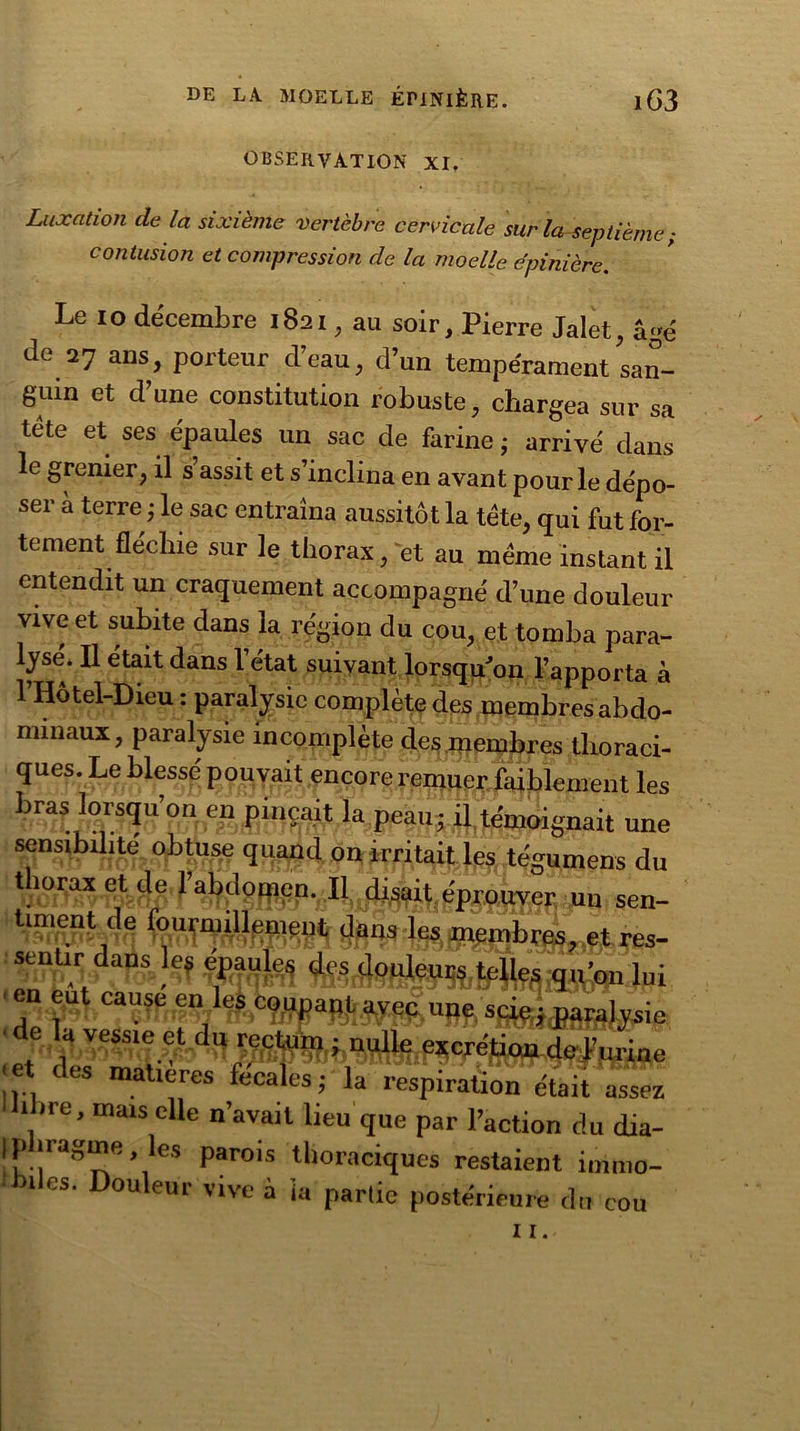 DE LA MOELLE ÉPINIÈRE. 163
OBSERVATION XI.
Luxation de la sixième vertèbre cervicale sur la septième;
contusion et compression de la moelle épinière.
Le 10 décembre 1821, au soir, Pierre Jalet, âgé
de 27 ans, porteur d'eau, d'un tempérament san-
guin et d'une constitution robuste, chargea sur sa
tête et ses épaules un sac de farine; arrivé dans
le grenier, il s'assit et s'inclina en avant pour le dépo-
ser à terre; le sac entraîna aussitôt la tête, qui fut for-
tement fléchie sur le thorax, et au même instant il
entendit un craquement accompagné d'une douleur
vive et subite dans la région du cou, et tomba para-
lysé. Il était dans l'état suivant lorsqu'on l'apporta à
l'Hôtel-Dieu: paralysie complète des membres abdo-
minaux, paralysie incomplète des membres thoraci-
ques. Le blessé pouvait encore remuer faiblement les
bras lorsqu'on en pinçait la peau; il témoignait une
sensibilité obtuse quand on irritait les tégumens du
thorax et de l'abdomen. Il disait éprouver un sen-
timent de fourmillement dans les membres, et res-
sentir dans les épaules des douleurs telles qu'on lui
en eût causé en les coupant avec une scie; paralysie
de la vessie et du rectum; nulle excrétion de l'urine
et des matières fécales; la respiration était assez
libre, mais elle n'avait lieu que par l'action du dia-
phragme, les parois thoraciques restaient immo-
biles. Douleur vive à la partie postérieure du cou
11.